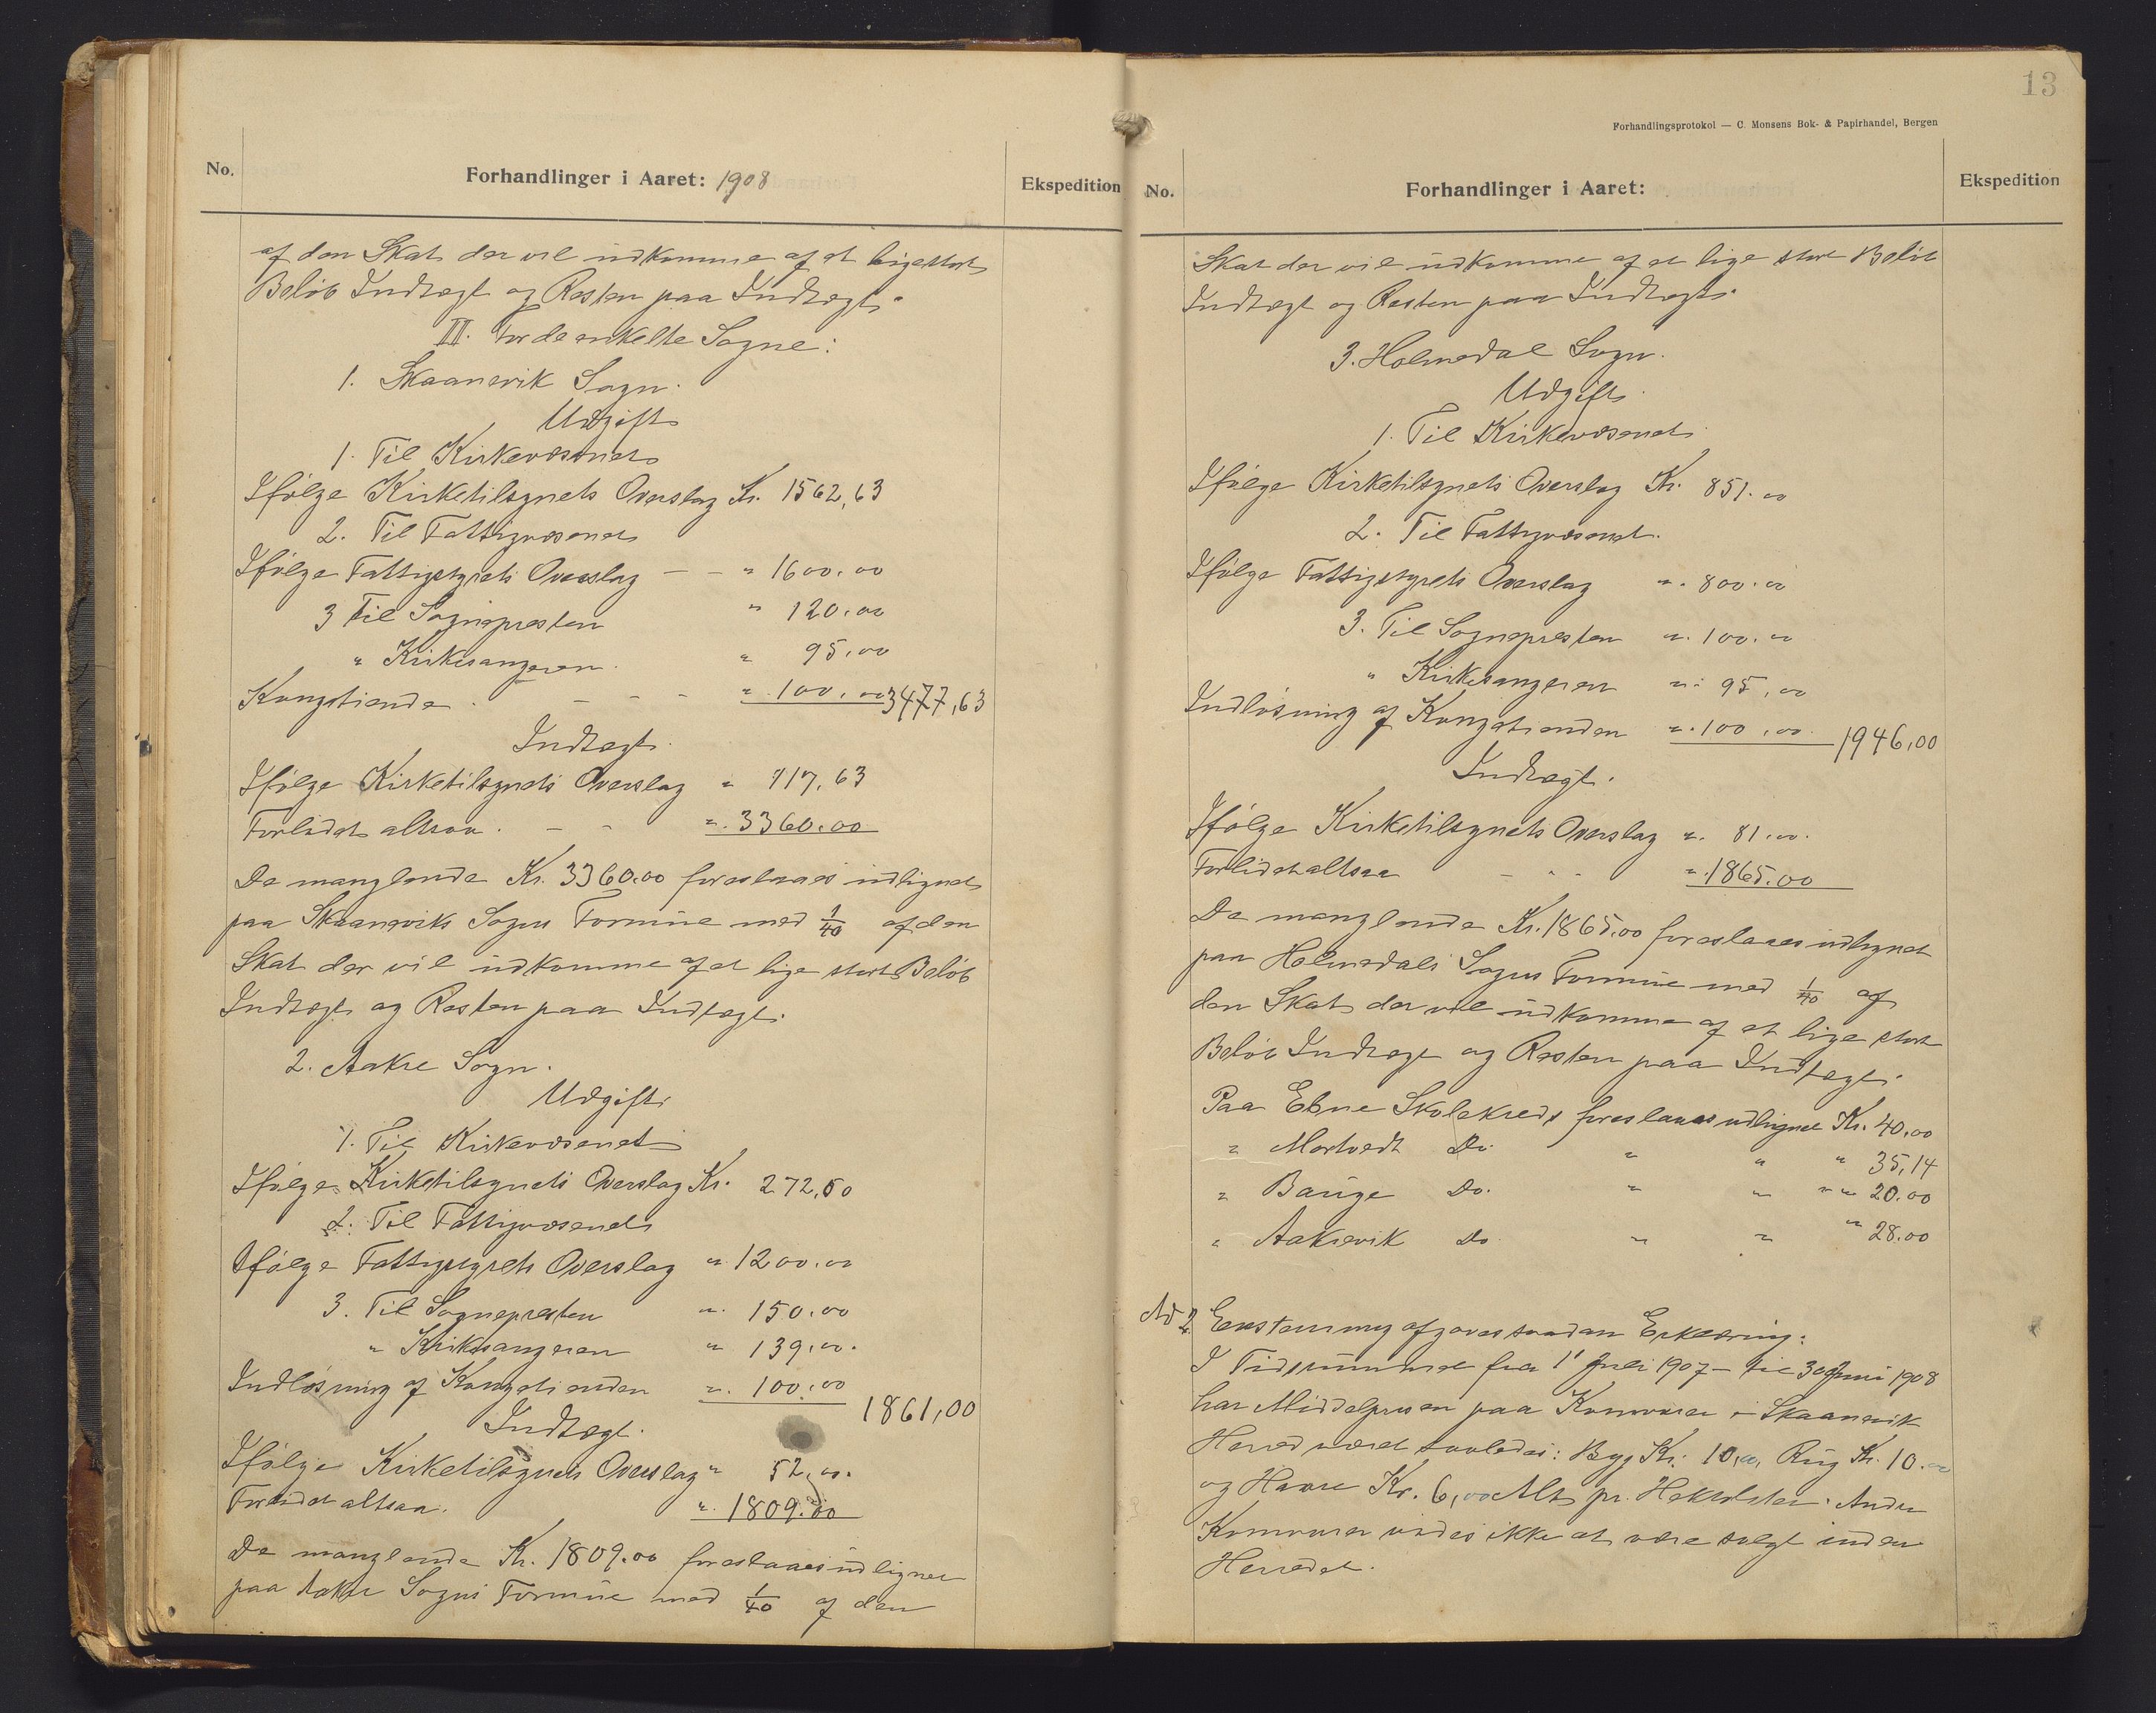 No.
Forhandlinger i Aaret: 1908
Ekspedition
af den Skat der vil udkomme af et ligestort
Beløb Indtægt og Resten paa Indtægt.
II. For de enkelte Sogne:
1. Skaanevik Sogn.
Udgift
1. Til Kirkevæsenet
Ifølge Kirketilsynets Overslag Kr. 1562,63
2. Til Fattigvæsenet
Ifølge Fattigstyrets Overslag — — " 1600.00
3 Til Sognepresten " 120.00
" Kirkesangeren. " 95,00
Kongetiende. - - - " 100.00 3477,63
Indtægt.
Ifølge Kirketilsynets Overslag " 117,63
Forlidet altsaa. - - ". 3360.00
De manglende Kr. 3360.00 foreslaaes udlignet
paa Skaaneviks Sogns Formue med 1/40 af den
Skat der vil udkomme af et lige stort Beløb
Indtægt og Resten paa Indtægt.
2. Aakre Sogn.
Udgift.
1. Til Kirkevæsenet
Ifølge Kirketilsynets Overslag Kr. 272,00
2. Til Fattigvæsenet
Ifølge Fattigstyrets Overslag " 1200.00
3. Til Sognepresten ". 150.00
" Kirkesangeren " 139.00.
Indløsning af Kongetienden ". 100.00
1861,00
Indtægt.
Ifølge Kirketilsynets Overslag " 52,00.
Forlidet altsaa. ". 1809.00
De manglende Kr. 1809.00 foreslaaes udlignet
paa Aakre Sogns Formue med 1/40 af den
13
Forhandlingsprotokol — C. Monsens Bok- & Papirhandel, Bergen
No.
Forhandlinger i Aaret:
Ekspedition
Skat der vil udkomme af et lige stort Beløb
Indtægt og Resten paa Indtægt.
3. Holmedal Sogn.
Udgift.
1. Til Kirkevæsenet
Ifølge Kirketilsynets Overslag Kr. 851.00
2. Til Fattigvæsenet.
Ifølge Fattigstyrets Overslag ". 800.00
3. Til Sognepresten ". 100.00
" Kirkesangeren ". 95,00
Indløsning af Kongetienden ". 100,00. 1946,00
Indtægt.
Ifølge Kirketilsynets Overslag ". 81.00.
Forlidet altsaa - - - ". 1865.00
De manglende Kr. 1865.00 foreslaaes udlignet
paa Holmedals Sogns Formue med 1/40 af
den Skat der vil udkomme af et lige stort
Beløb Indtægt og Resten paa Indtægt.
Paa Ebne Skolekreds foreslaaes udlignet Kr. 40,00
" Mortvedt Do. " " " 35,14
" Bauge Do. " " " 20.00
" Aakrevik Do. " " " 28.00
Ad 2. Eenstemmig afgaves saadan Erklæring:
I Tidsrummet fra 1' Juli 1907 - til 30 Juni 1908
har Middelprisen paa Kornvarer i Skaanevik
Herred været saaledes: Byg Kr. 10,00, Rug Kr. 10.00
og Havre Kr. 6,00 Alt pr. Hektoliter. Andre
Kornvarer vides ikke at være solgt inden
Herredet.